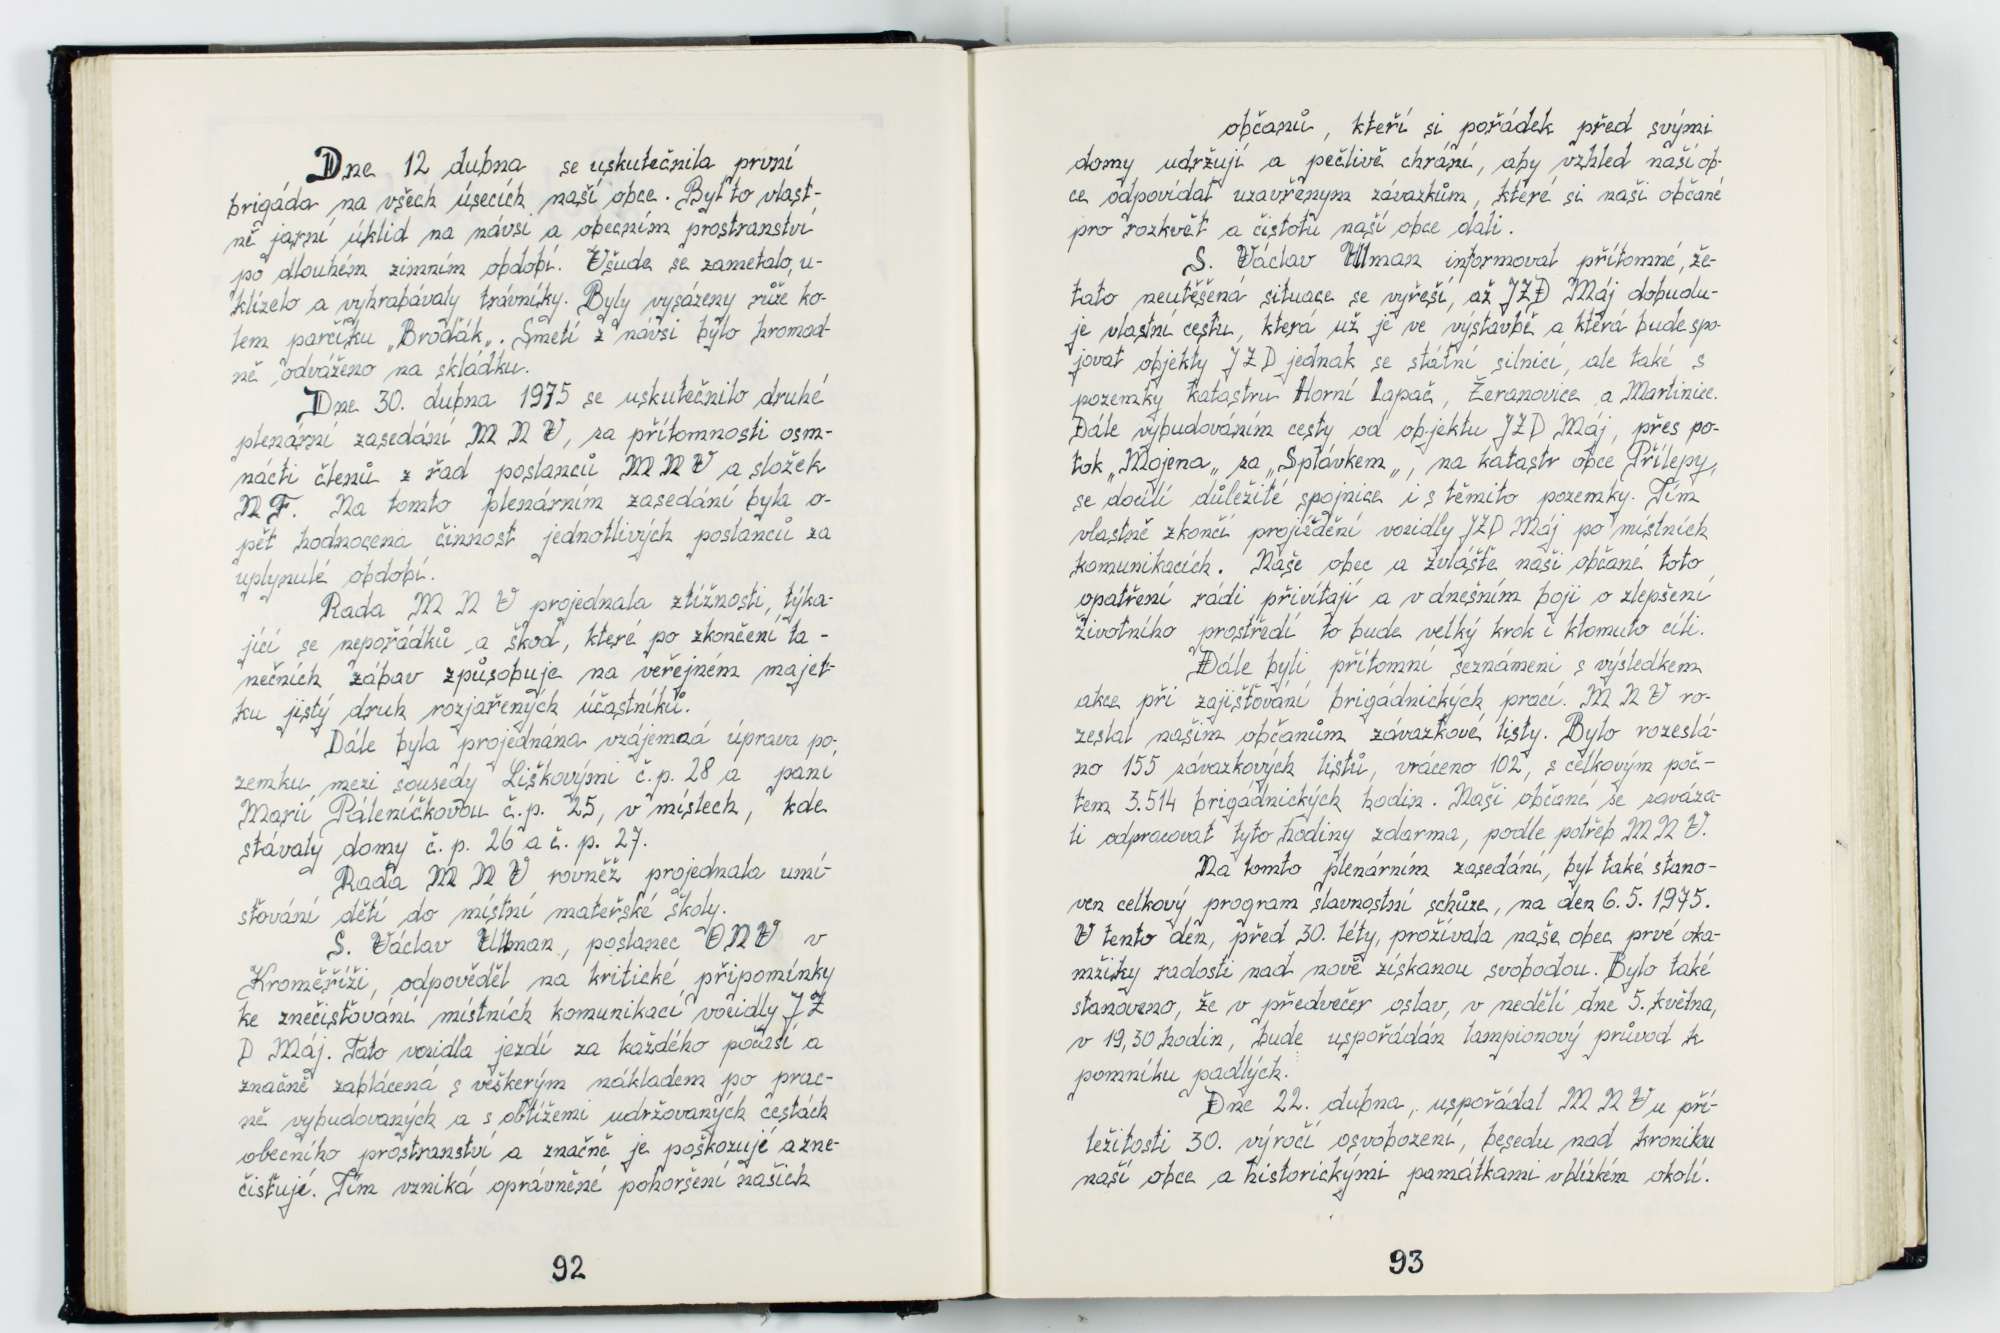 Dne 12 dubna se uskutečnila první
brigáda na všech úsecích naší obce. Byl to vlast-
ně jarní úklid na návsi a obecním prostranství
po dlouhém zimním období. Všude se zametalo, u-
klízelo a vyhrabávaly trávníky. Byly vysázeny růže ko-
lem parčíku „Broďák„. Smetí z návsi bylo hromad-
ně odváženo na skládku.
Dne 30. dubna 1975 se uskutečnilo druhé
plenární zasedání MNV, za přítomnosti osm-
nácti členů z řad poslanců MNV a složek
NF. Na tomto plenárním zasedání byla o-
pět hodnocena činnost jednotlivých poslanců za
uplynulé období.
Rada MNV projednala ztížnosti, týka-
jící se nepořádků a škod, které po zkončení ta-
nečních zábav způsobuje na veřejném majet-
ku jistý druh rozjařených účastníků.
Dále byla projednána vzájemná úprava po-
zemku mezi sousedy Liškovými č.p. 28 a paní
Marií Páleníčkovou č.p. 25, v místech, kde
stávaly domy č. p. 26 a č. p. 27.
Rada MNV rovněž projednala umí-
sťování dětí do místní mateřské školy.
S. Václav Ullman, poslanec ONV v
Kroměříži, odpověděl na kritické připomínky
ke znečisťování místních komunikací vozidly JZ
D Máj. Tato vozidla jezdí za každého počasí a
značně zablácená s veškerým nákladem po prac-
ně vybudovaných a s obtížemi udržovaných cestách
obecního prostranství a značně je poškozují a zne-
čisťují. Tím vzniká oprávněné pohoršení našich
92
občanů, kteří si pořádek před svými
domy udržují a pečlivě chrání, aby vzhled naší ob-
ce odpovídal uzavřeným závazkům, které si naši občané
pro rozkvět a čistotu naší obce dali.
S. Václav Ullman informoval přítomné, že-
tato neutěšená situace se vyřeší, až JZD Máj dobudu-
je vlastní cestu, která už je ve výstavbě a která bude spo-
jovat objekty JZD jednak se státní silnicí, ale také s
pozemky katastru Horní Lapač, Žeranovice a Martinice.
Dále vybudováním cesty od objektu JZD Máj, přes po-
tok „Mojena„ za „Splávkem„, na katastr obce Přílepy,
se docílí důležité spojnice i s těmito pozemky. Tím
vlastně zkončí projíždění vozidly JZD Máj po místních
komunikacích. Naše obec a zvláště naši občané toto
opatření rádi přivítají a v dnešním boji o zlepšení
životního prostředí to bude velký krok i ktomuto cíli.
Dále byli přítomní seznámeni s výsledkem
akce při zajišťování brigádnických prací. MNV ro-
zeslal našim občanům závazkové listy. Bylo rozeslá-
no 155 závazkových listů, vráceno 102, s celkovým poč-
tem 3.514 brigádnických hodin. Naši občané se zaváza-
li odpracovat tyto hodiny zdarma, podle potřeb MNV.
Na tomto plenárním zasedání, byl také stano-
ven celkový program slavnostní schůze, na den 6. 5. 1975.
V tento den, před 30. léty, prožívala naše obec prvé oka-
mžiky radosti nad nově získanou svobodou. Bylo také
stanoveno, že v předvečer oslav, v neděli dne 5. května,
v 19,30 hodin, bude uspořádán lampionový průvod k
pomníku padlých.
Dne 22. dubna, uspořádal MNV u pří-
ležitosti 30. výročí osvobození, besedu nad kronikou
naší obce a historickými památkami v blízkém okolí.
93